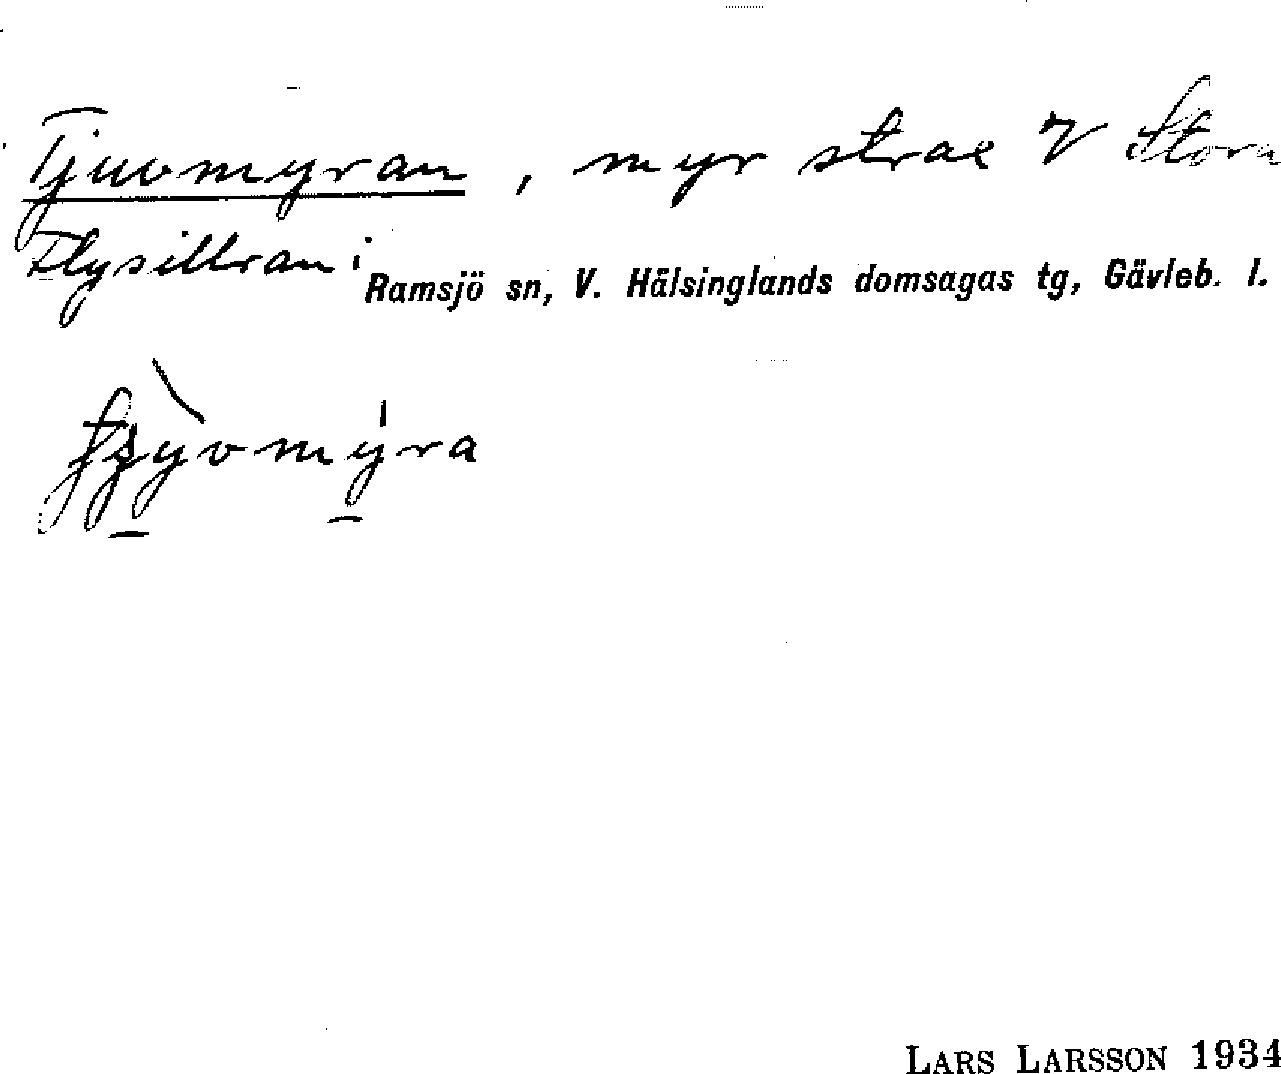 Tjuvmyran, myr strax V Stora
Flysillran i
Ramsjö sn, V. Hälsinglands domsagas tg, Gävleb. l.
LARS LARSSON 1934